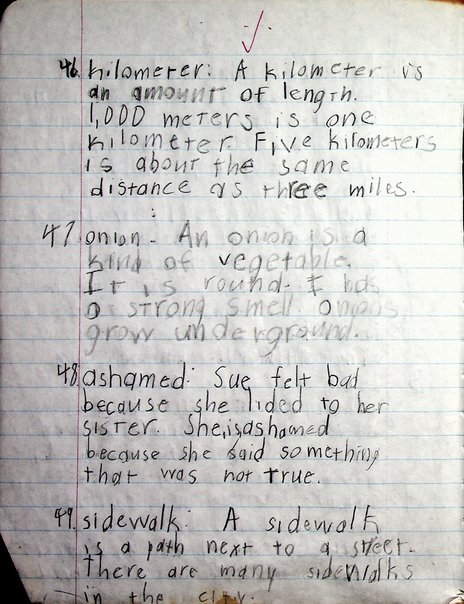 46. kilometer: A kilometer is
an amount of length.
1,000 meters is one
kilometer. Five kilometers
is about the same
distance as three miles.
47. onion - An onion is a
kind of vegetable.
It is round. I has
a strong smell. Onions
grow underground.
48. ashamed: Sue felt bad
because she lided to her
sister. She is ashamed
because she said something
that was not true.
49. sidewalk: A sidewalk
is a path next to a street.
There are many sidewalks
in the city.